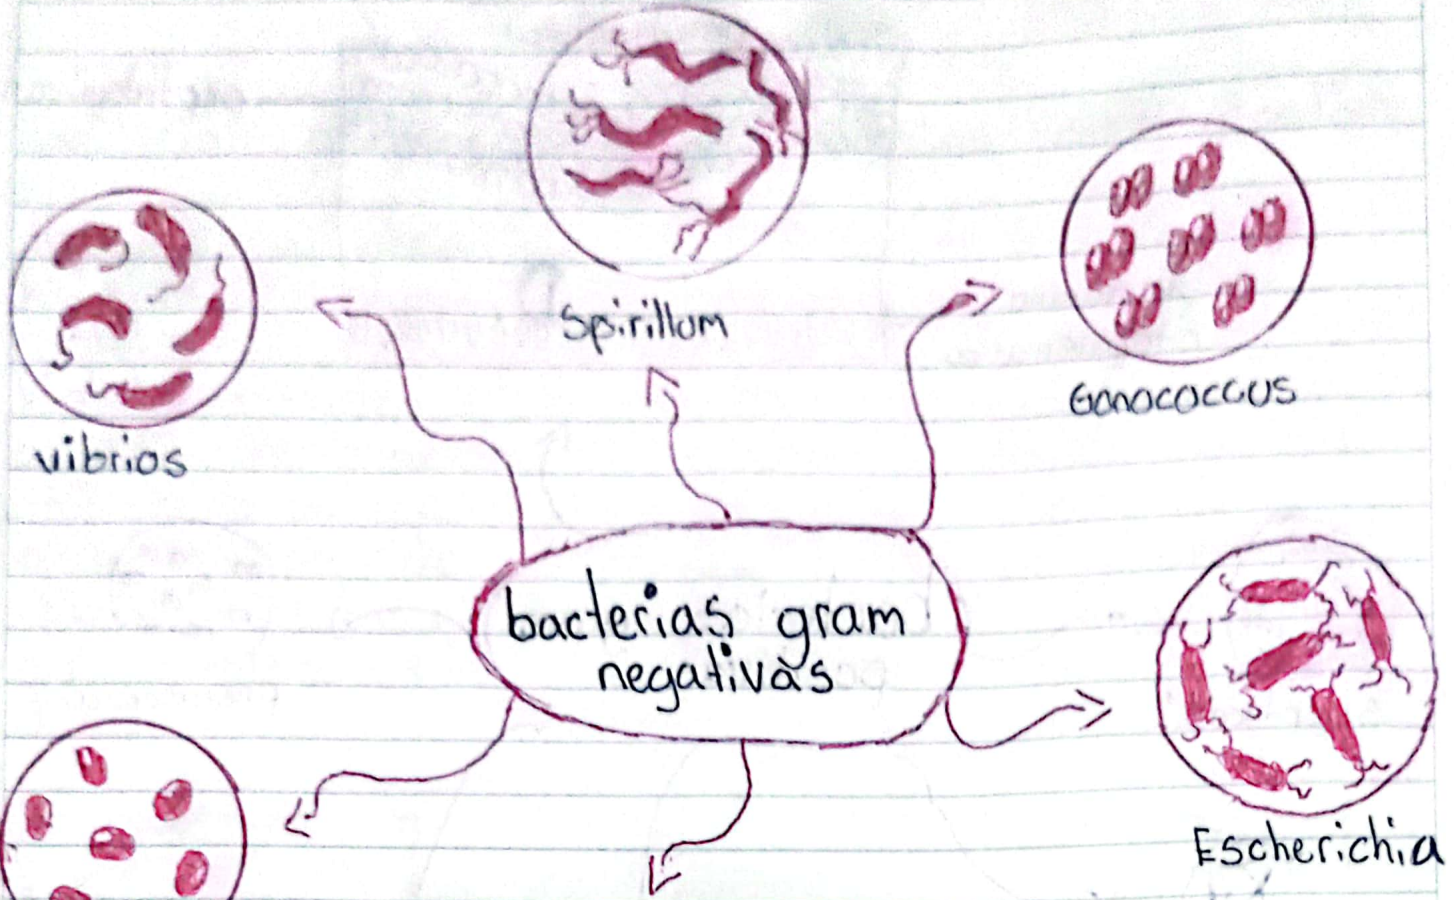 Spirillum
Gonococcus
vibrios
bacterias gram
negativas
Escherichia